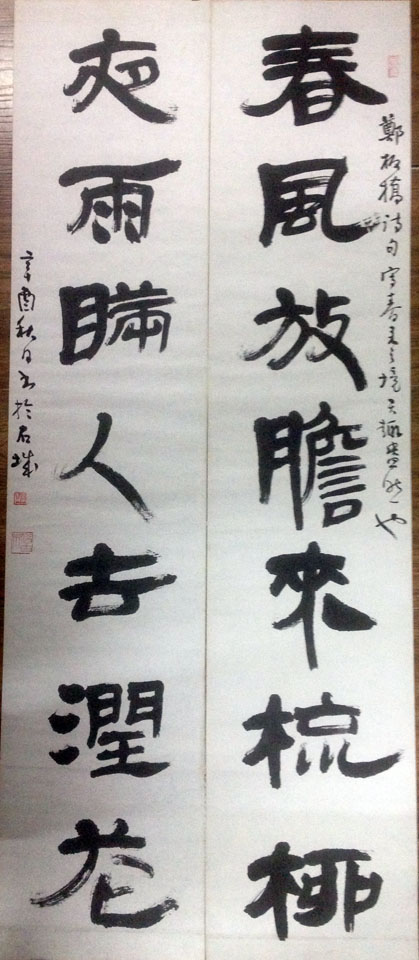 鄭板橋诗句写春之境天趣盎然也
春風放膽來梳柳
夜雨瞞人去潤花
辛酉秋日书於石城